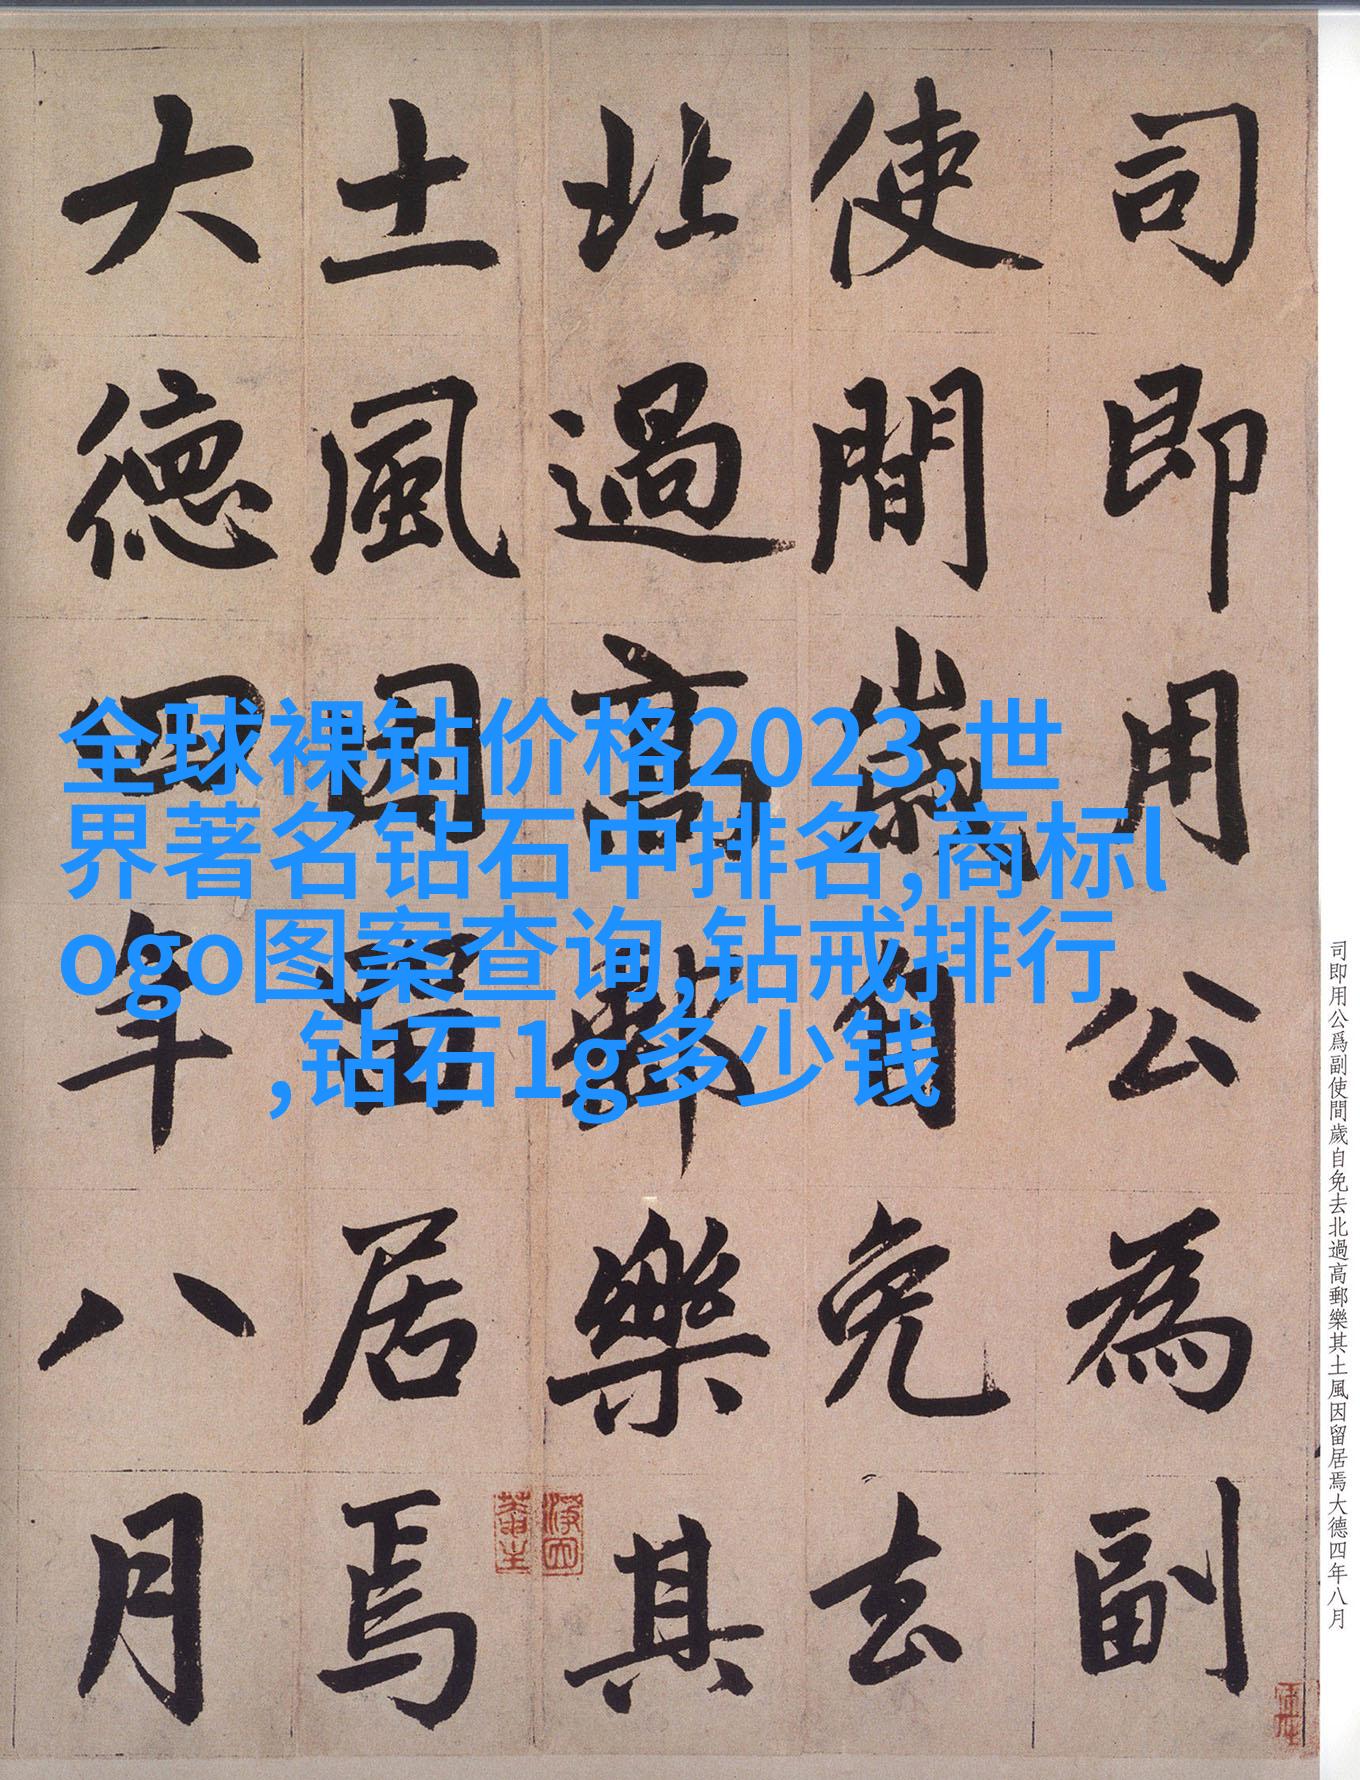 司即用公為副
使間歲自免去
北過高郵樂其
土風因留居焉
大德四年八月
全球裸钻价格2023,世
界著名钻石中排名,商标l
ogo图案查询,钻戒排行
,钻石1g多少钱
司即用公爲副使間歲自免去北過高郵樂其土風因留居焉大德四年八月